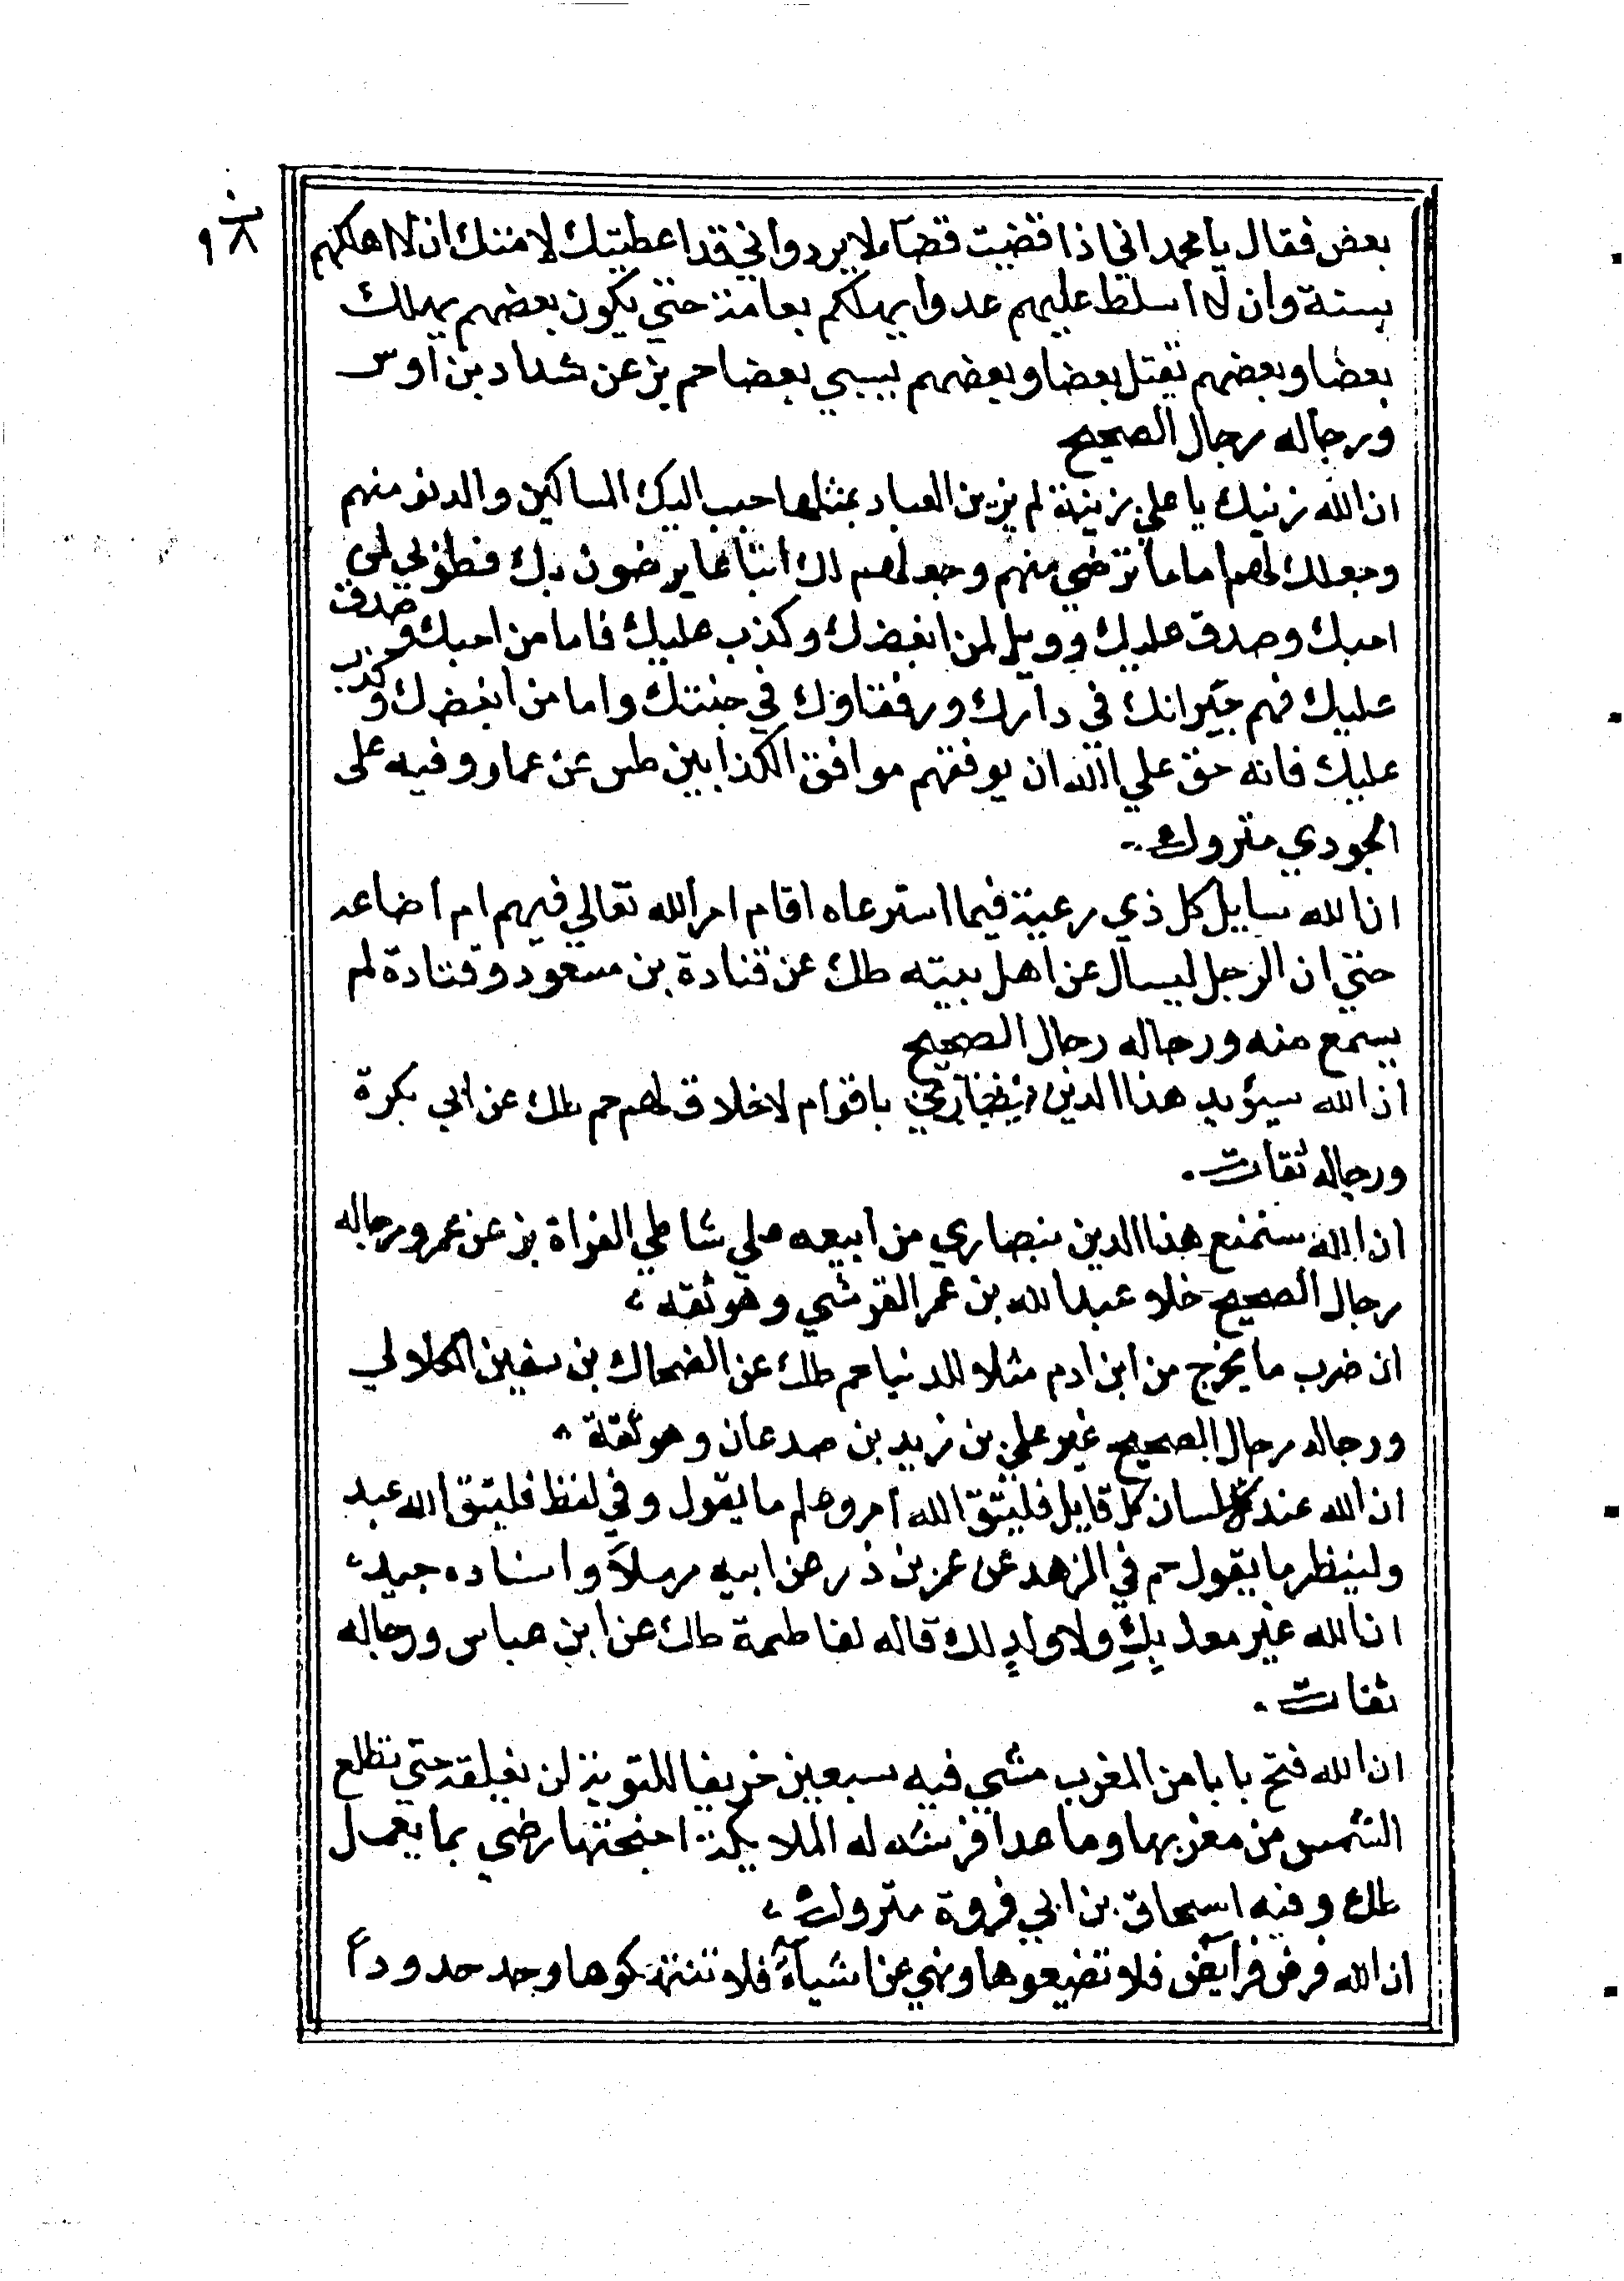 بعض فقال يا محمد اني اذا قضيت قضاء لا يرد واني قد اعطيتك لامتك ان لا اهلكهم
بسنة وان لا اسلط عليهم عدوا يهلكهم بعامة حتي يكون بعضهم يهلك
بعضا وبعضهم يقتل بعضا وبعضهم يسبي بعضا حم بز عن شداد بن اوس
ورجاله رجال الصحيح
ان الله زينك يا علي بزينة لم يزين العباد بمثلها حبب اليك المساكين والدنو منهم
وجعلك لهم اماما ترضي منهم وجعلهم لك اتباعا يرضون بك فطوبي لمن
احبك وصدق عليك وويل لمن ابغضك وكذب عليك فاما من احبك وصدق
عليك فهم جيرانك في دارك ورفقاؤك في جنتك واما من ابغضك وكذب
عليك فانه حق علي الله ان يوقفهم مواقف الكذابين طس عن عمار وفيه علي
الجودي متروك
ان الله سايل كل ذي رعية فيما استرعاه اقام امر الله تعالي فيهم ام اضاعه
حتي ان الرجل ليسال عن اهل بيته طك عن قتادة بن مسعود وقتادة لم
يسمع منه ورجاله رجال الصحيح
ان الله سيؤيد هذا الدين باقوام لا خلاق لهم حم طك عن ابي بكرة
ورجاله ثقات.
ان الله سيمنع هذا الدين بنصاري من ربيعه علي شاطي الفراة بز عن عمر ورجاله
رجال الصحيح خلا عبد الله بن عمر القرشي وهو ثقه
ان ضرب ما يخرج من ابن ادم مثلا للدنيا حم طك عن الضحاك بن سفين الكلابي
ورجاله رجال الصحيح غير علي بن زيد بن جدعان وهو ثقة
ان الله عند كل لسان كل قايل فليتق الله امرو علم ما يقول وفي لفظ فليتق الله عبد
ولينظر ما يقول حم في الزهد عن عمر بن ذر عن ابيه مرسلا واسناده جيد
ان الله غير معذبكِ ولا ولدٍ لك قاله لفاطمة طك عن ابن عباس ورجاله
ثقات.
ان الله فتح بابا من المغرب مشي فيه سبعين خريفا للتوبة لن يغلقه حتي تطلع
الشمس من مغربها وما عدا فرشه له الملايكة اجنحتها رضي بما يعمل
طك وفيه اسحاق بن ابي فروة متروك
ان الله فرض فرايض فلا تضيعوها ونهي عن اشياء فلا تنتهكوها وحد حدوداً